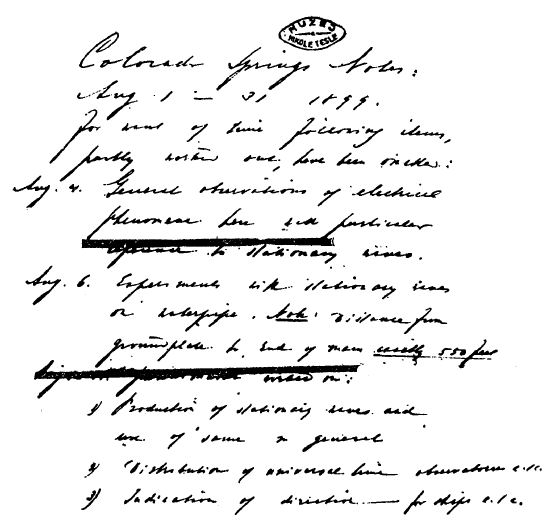 MUZEJ
NIKOLE TESLE
Colorado Springs Notes:
Aug. 1 — 31 1899.
For want of time following items,
partly worked out, have been omitted:
Aug. 4. General observations of electrical
phenomena here with particular
reference to stationary waves.
Aug. 6. Experiments with stationary waves
on waterpipe. Note: Distance from
groundplate to end of main exactly 550 feet
worked on:
1) Production of stationary waves and
use of same in general
2) Distribution of universal time observatories e.t.c.
3) Indication of direction — for ships e.t.c.